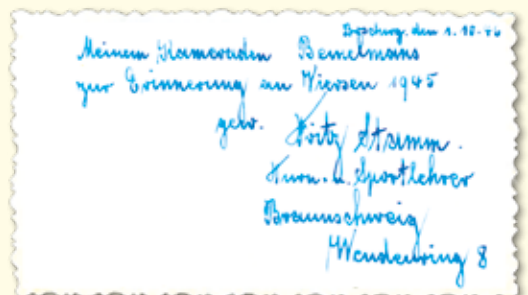 den 1. 10. 46
Meinem Kameraden Bemelmans
zur Erinnerung an Viersen 1945
gew. Fritz Stamm.
Turn- u. Sportlehrer
Braunschweig
Wendenring 8